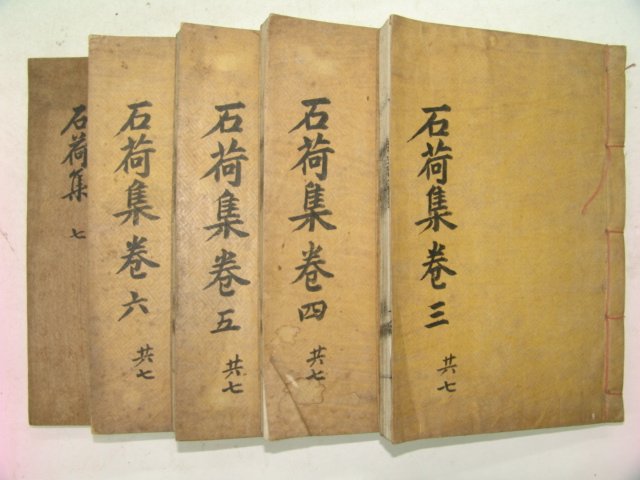 石荷集卷三
共七
石荷集卷四
共七
石荷集卷五
共七
石荷集卷六
共七
石荷集 七